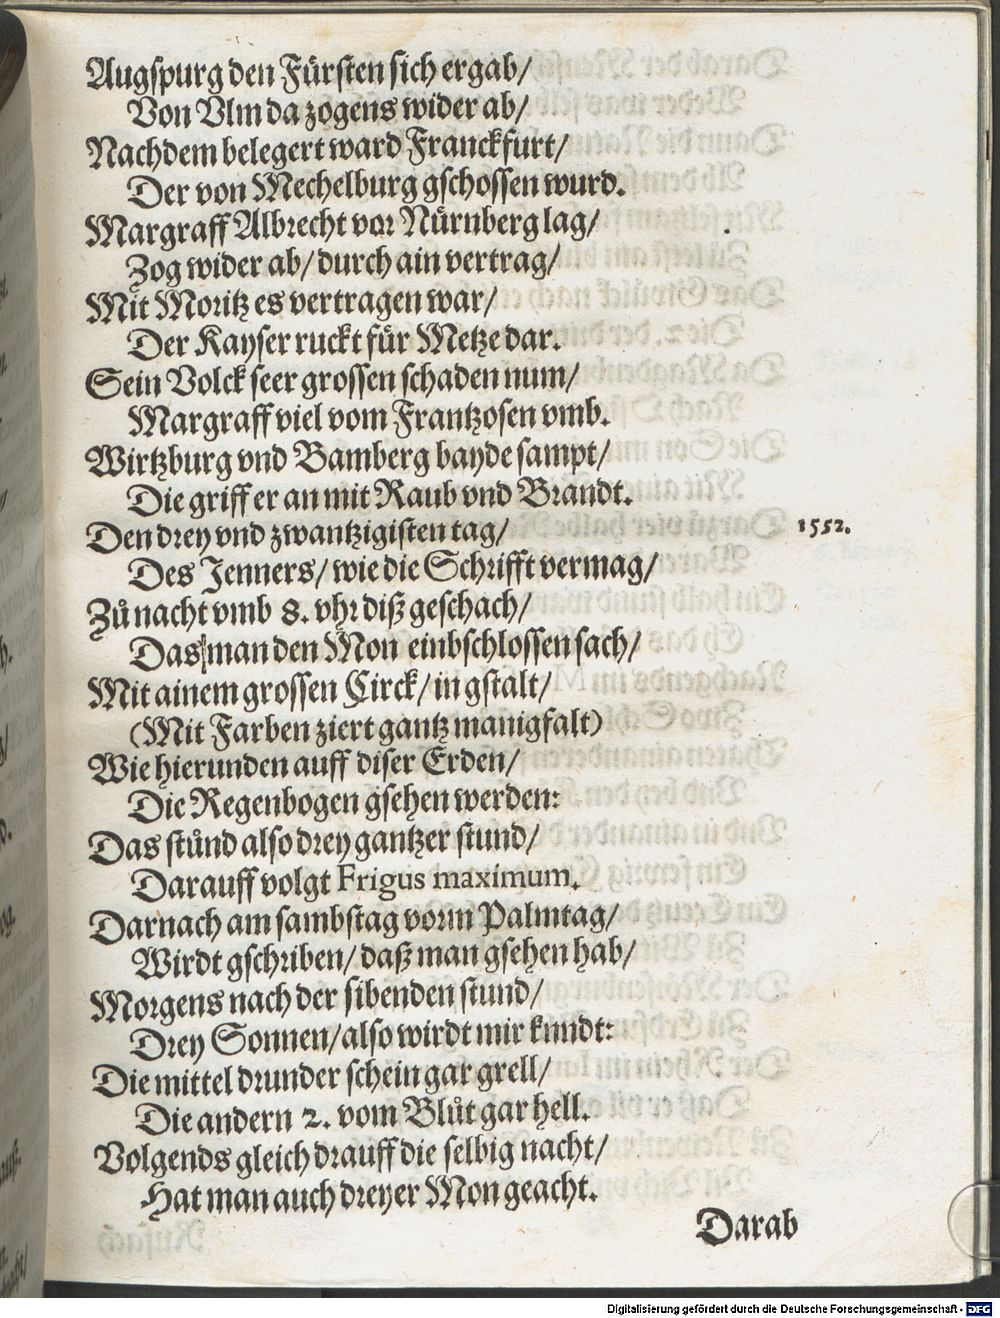 Augspurg den Fürsten sich ergab/
Von Vlm da zogens wider ab/
Nachdem belegert ward Franckfurt/
Der von Mechelburg gschossen wurd.
Margraff Albrecht vor Nürnberg lag/
Zog wider ab/ durch ain vertrag/
Mit Moritz es vertragen war/
Der Kayser ruckt für Metze dar.
Sein Volck seer grossen schaden num/
Margraff viel vom Frantzosen vmb.
Wirtzburg vnd Bamberg bayde sampt/
Die griff er an mit Raub vnd Brandt.
Den drey vnd zwantzigisten tag/ 1552.
Des Jenners/ wie die Schrifft vermag/
Zů nacht vmb 8. vhr diß geschach/
Das man den Mon einbschlossen sach/
Mit ainem grossen Circk/ in gstalt/
(Mit Farben ziert gantz manigfalt)
Wie hierunden auff diser Erden/
Die Regenbogen gsehen werden:
Das stůnd also drey gantzer stund/
Darauff volgt Frigus maximum.
Darnach am sambstag vorm Palmtag/
Wirdt gschriben/ daß man gsehen hab/
Morgens nach der sibenden stund/
Drey Sonnen/ also wirdt mir kundt:
Die mittel drunder schein gar grell/
Die andern 2. vom Blůt gar hell.
Volgends gleich drauff die selbig nacht/
Hat man auch dreyer Mon geacht.
Darab
Digitalisierung gefördert durch die Deutsche Forschungsgemeinschaft - DFG